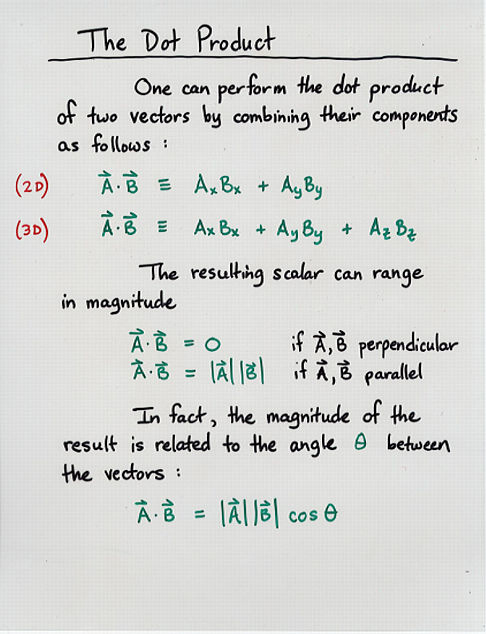 The Dot Product
One can perform the dot product
of two vectors by combining their components
as follows :
(2D) A⃗·B⃗ ≡ AₓBₓ + A_yB_y
(3D) A⃗·B⃗ ≡ AₓBₓ + A_yB_y + A_zB_z
The resulting scalar can range
in magnitude
A⃗·B⃗ = 0 if A⃗,B⃗ perpendicular
A⃗·B⃗ = |A⃗||B⃗| if A⃗,B⃗ parallel
In fact, the magnitude of the
result is related to the angle θ between
the vectors :
A⃗·B⃗ = |A⃗||B⃗| cos θ